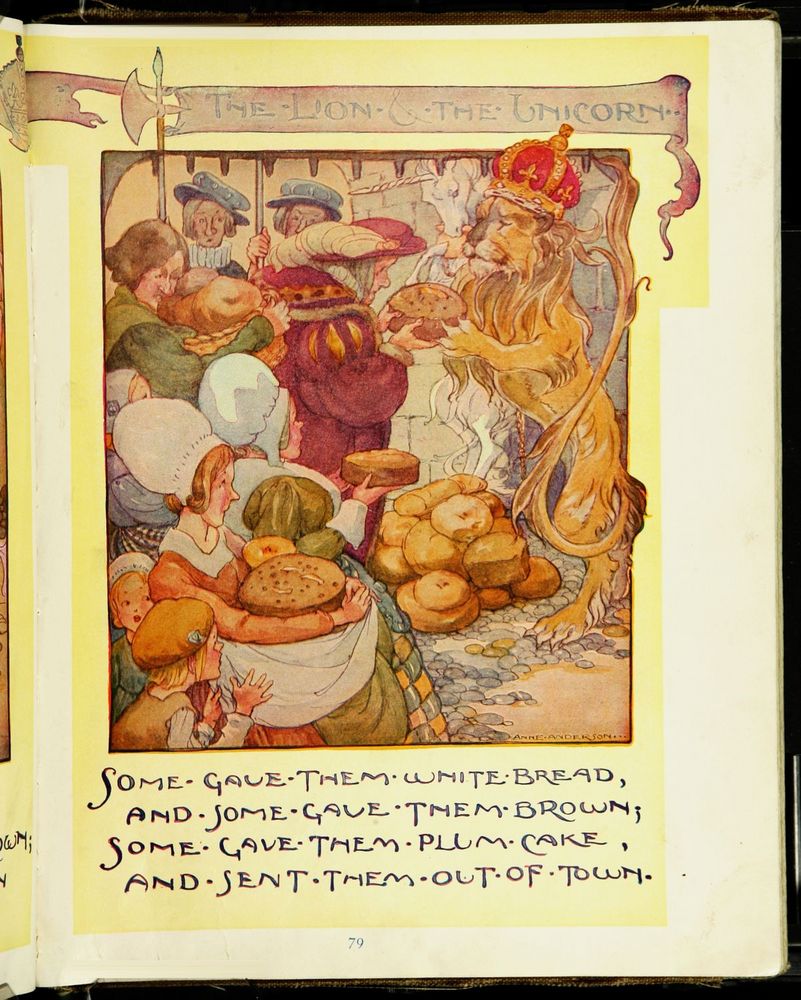 THE · LION · & · THE · UNICORN ··
ANNE · ANDERSON ···
SOME · GAVE · THEM · WHITE · BREAD,
AND · SOME · GAVE · THEM · BROWN;
SOME · GAVE · THEM · PLUM · CAKE ,
AND · SENT · THEM · OUT · OF · TOWN ·
79
OWN;
N